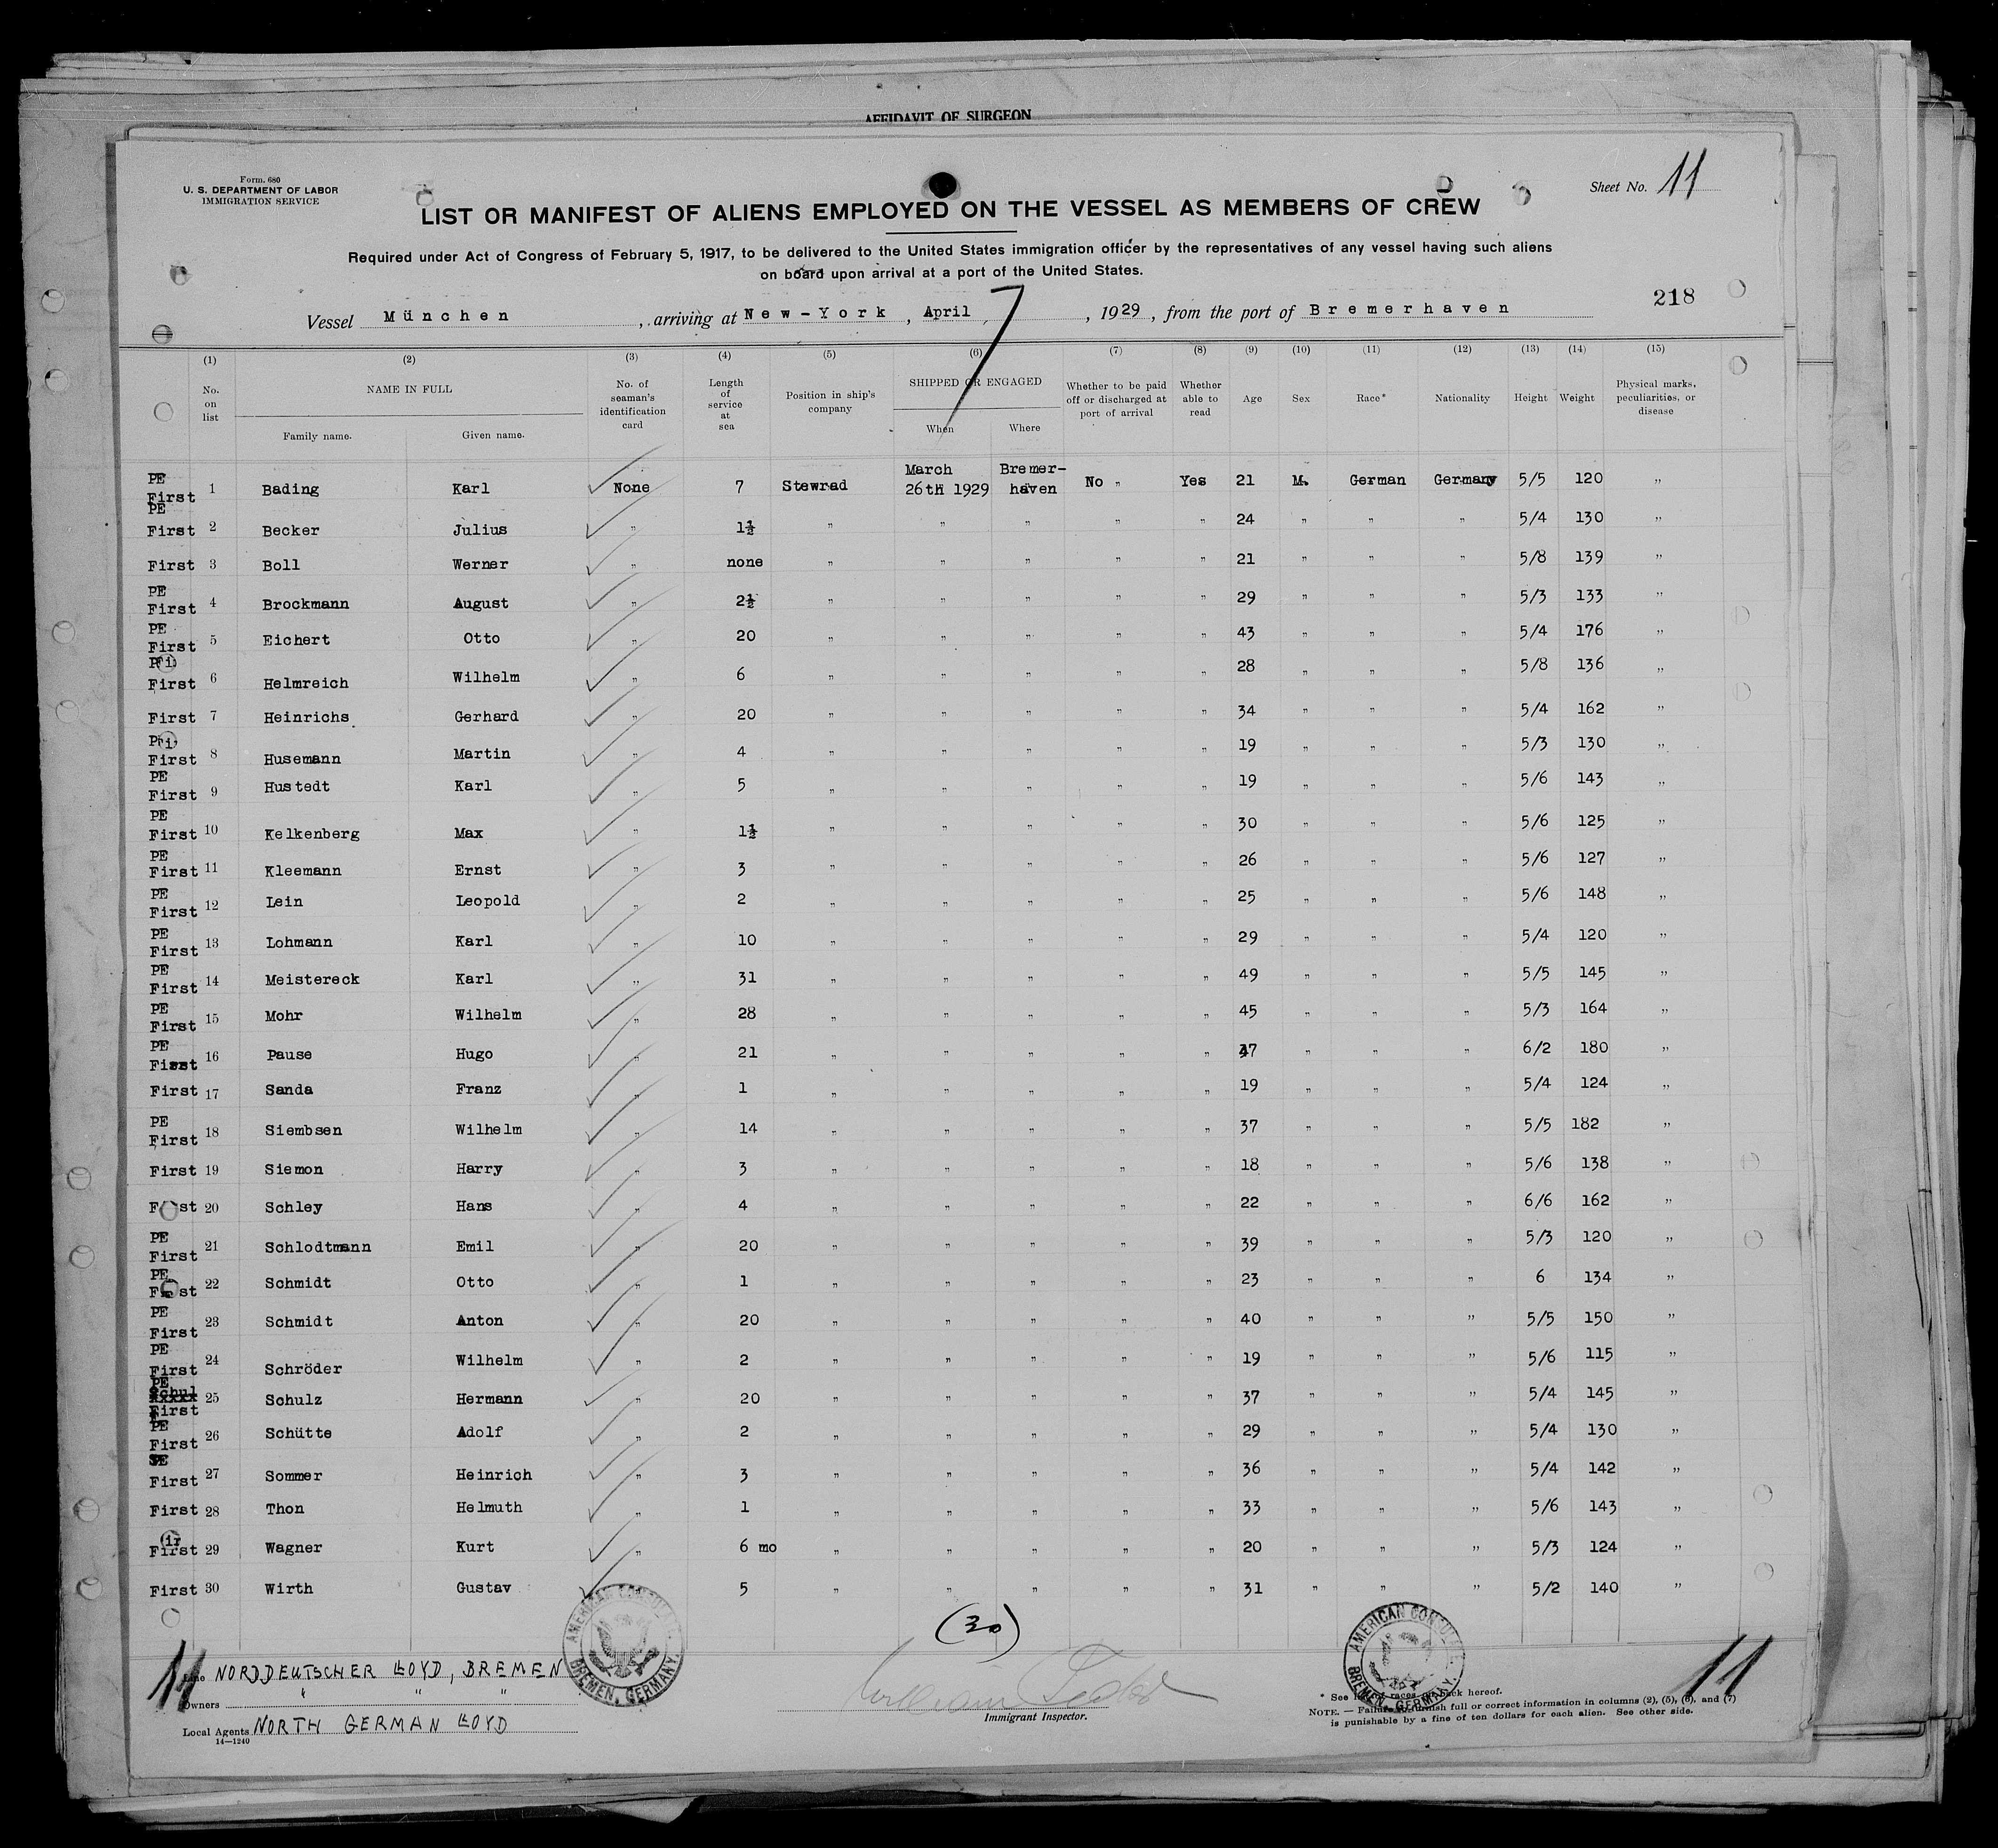 AFFIDAVIT OF SURGEON
Form. 680
U. S. DEPARTMENT OF LABOR
IMMIGRATION SERVICE
Sheet No. 11
LIST OR MANIFEST OF ALIENS EMPLOYED ON THE VESSEL AS MEMBERS OF CREW
Required under Act of Congress of February 5, 1917, to be delivered to the United States immigration officer by the representatives of any vessel having such aliens
on board upon arrival at a port of the United States.
218
Vessel München, arriving at New-York, April 7, 1929, from the port of Bremerhaven
(1) (2) (3) (4) (5) (6) (7) (8) (9) (10) (11) (12) (13) (14) (15)
No. on list NAME IN FULL Family name. Given name. No. of seaman's identification card Length of service at sea Position in ship's company SHIPPED OR ENGAGED When Where Whether to be paid off or discharged at port of arrival Whether able to read Age Sex Race* Nationality Height Weight Physical marks, peculiarities, or disease
PE First 1 Bading Karl None 7 Stewrad March 26th 1929 Bremer-haven No " Yes 21 M. German Germany 5/5 120 "
PE First 2 Becker Julius " 1½ " " " " " 24 " " " 5/4 130 "
First 3 Boll Werner " none " " " " " 21 " " " 5/8 139 "
PE First 4 Brockmann August " 2½ " " " " " 29 " " " 5/3 133 "
PE First 5 Eichert Otto " 20 " " " " " 43 " " " 5/4 176 "
First 6 Helmreich Wilhelm " 6 " " " " " 28 " " " 5/8 136 "
First 7 Heinrichs Gerhard " 20 " " " " " 34 " " " 5/4 162 "
First 8 Husemann Martin " 4 " " " " " 19 " " " 5/3 130 "
PE First 9 Hustedt Karl " 5 " " " " " 19 " " " 5/6 143 "
PE First 10 Kelkenberg Max " 1½ " " " " " 30 " " " 5/6 125 "
PE First 11 Kleemann Ernst " 3 " " " " " 26 " " " 5/6 127 "
PE First 12 Lein Leopold " 2 " " " " " 25 " " " 5/6 148 "
PE First 13 Lohmann Karl " 10 " " " " " 29 " " " 5/4 120 "
PE First 14 Meistereck Karl " 31 " " " " " 49 " " " 5/5 145 "
PE First 15 Mohr Wilhelm " 28 " " " " " 45 " " " 5/3 164 "
PE First 16 Pause Hugo " 21 " " " " " " " " 6/2 180 "
First 17 Sanda Franz " 1 " " " " " 19 " " " 5/4 124 "
PE First 18 Siembsen Wilhelm " 14 " " " " " 37 " " " 5/5 182 "
First 19 Siemon Harry " 3 " " " " " 18 " " " 5/6 138 "
First 20 Schley Hans " 4 " " " " " 22 " " " 6/6 162 "
PE First 21 Schlodtmann Emil " 20 " " " " " 39 " " " 5/3 120 "
PE First 22 Schmidt Otto " 1 " " " " " 23 " " " 6 134 "
PE First 23 Schmidt Anton " 20 " " " " " 40 " " " 5/5 150 "
PE First 24 Schröder Wilhelm " 2 " " " " " 19 " " " 5/6 115 "
PE First 25 Schulz Hermann " 20 " " " " " 37 " " " 5/4 145 "
PE First 26 Schütte Adolf " 2 " " " " " 29 " " " 5/4 130 "
First 27 Sommer Heinrich " 3 " " " " " 36 " " " 5/4 142 "
First 28 Thon Helmuth " 1 " " " " " 33 " " " 5/6 143 "
First 29 Wagner Kurt " 6 mo " " " " " 20 " " " 5/3 124 "
First 30 Wirth Gustav 5 " " " " " 31 " " " 5/2 140 "
(30)
AMERICAN CONSULATE BREMEN, GERMANY.
AMERICAN CONSULATE BREMEN, GERMANY.
11
11
Line NORDDEUTSCHER LLOYD, BREMEN
Owners " " "
Local Agents NORTH GERMAN LLOYD
14—1240
William
Immigrant Inspector.
* See list of races on back hereof.
NOTE. — Failure to furnish full or correct information in columns (2), (5), (6), and (7)
is punishable by a fine of ten dollars for each alien. See other side.